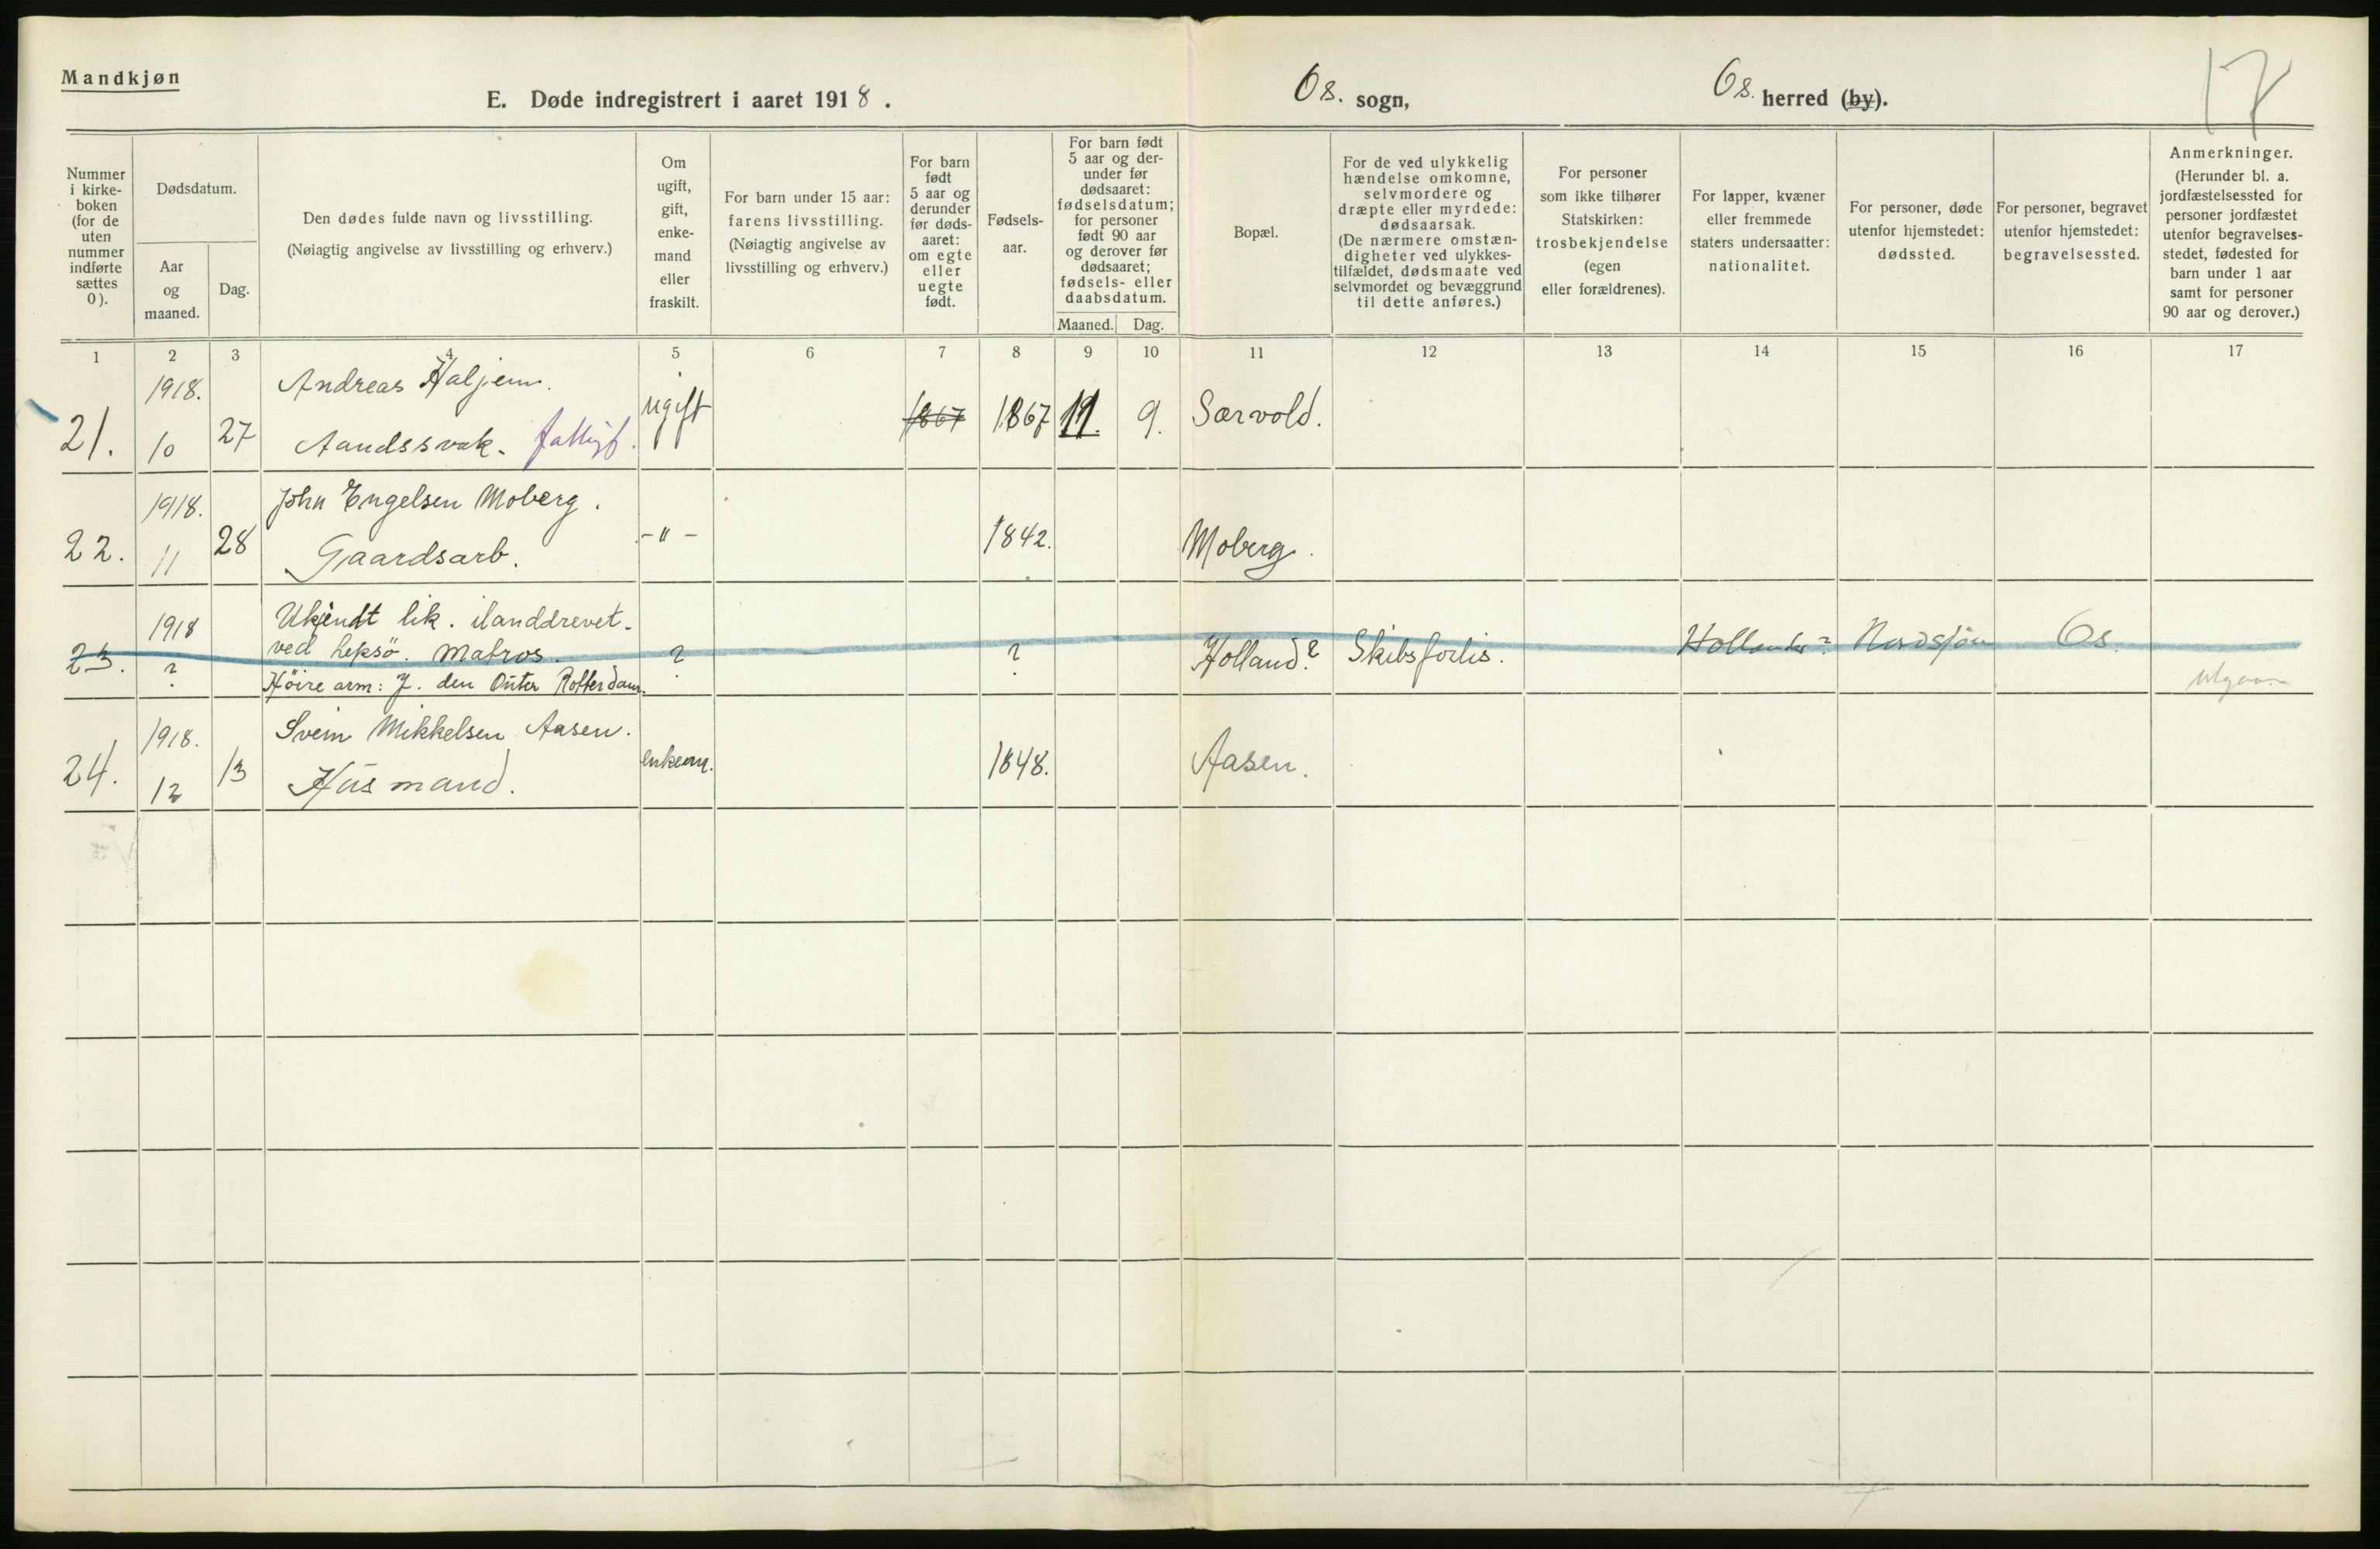 Mandkjøn
E. Døde indregistrert i aaret 1918.
Os. sogn,
Os. herred (by).
17
Nummer i kirke-boken (for de uten nummer indførte sættes 0).
Dødsdatum.
Aar og maaned.
Dag.
Den dødes fulde navn og livsstilling.
(Nøiagtig angivelse av livsstilling og erhverv.)
Om ugift, gift, enke-mand eller fraskilt.
For barn under 15 aar: farens livsstilling.
(Nøiagtig angivelse av livsstilling og erhverv.)
For barn født 5 aar og derunder før døds-aaret: om egte eller uegte født.
Fødsels-aar.
For barn født 5 aar og der-under før dødsaaret: fødselsdatum; for personer født 90 aar og derover før dødsaaret; fødsels- eller daabsdatum.
Maaned. Dag.
Bopæl.
For de ved ulykkelig hændelse omkomne, selvmordere og dræpte eller myrdede: dødsaarsak.
(De nærmere omstæn-digheter ved ulykkes-tilfældet, dødsmaate ved selvmordet og bevæggrund til dette anføres.)
For personer som ikke tilhører Statskirken: trosbekjendelse (egen eller forældrenes).
For lapper, kvæner eller fremmede staters undersaatter: nationalitet.
For personer, døde utenfor hjemstedet: dødssted.
For personer, begravet utenfor hjemstedet: begravelsessted.
Anmerkninger.
(Herunder bl. a. jordfæstelsessted for personer jordfæstet utenfor begravelses-stedet, fødested for barn under 1 aar samt for personer 90 aar og derover.)
1 2 3 4 5 6 7 8 9 10 11 12 13 14 15 16 17
21. 1918. 10 27 Andreas Haljem. ugift 1867 1867 11. 9. Særvold.
Aandssvak.
22. 1918. 11 28 John Engelsen Moberg. -"- 1842. Moberg.
Gaardsarb.
23. 1918 ? Ukjendt lik. ilanddrevet- ? ? Holland? Skibsforlis. Hollander? Nordsjøen Os.
ved Lepsö. Matros.
Höire arm: J. den Outer Rotterdam.
24. 1918. 12 13 Svein Mikkelsen Aasen. enkem. 1848. Aasen.
Husmand.